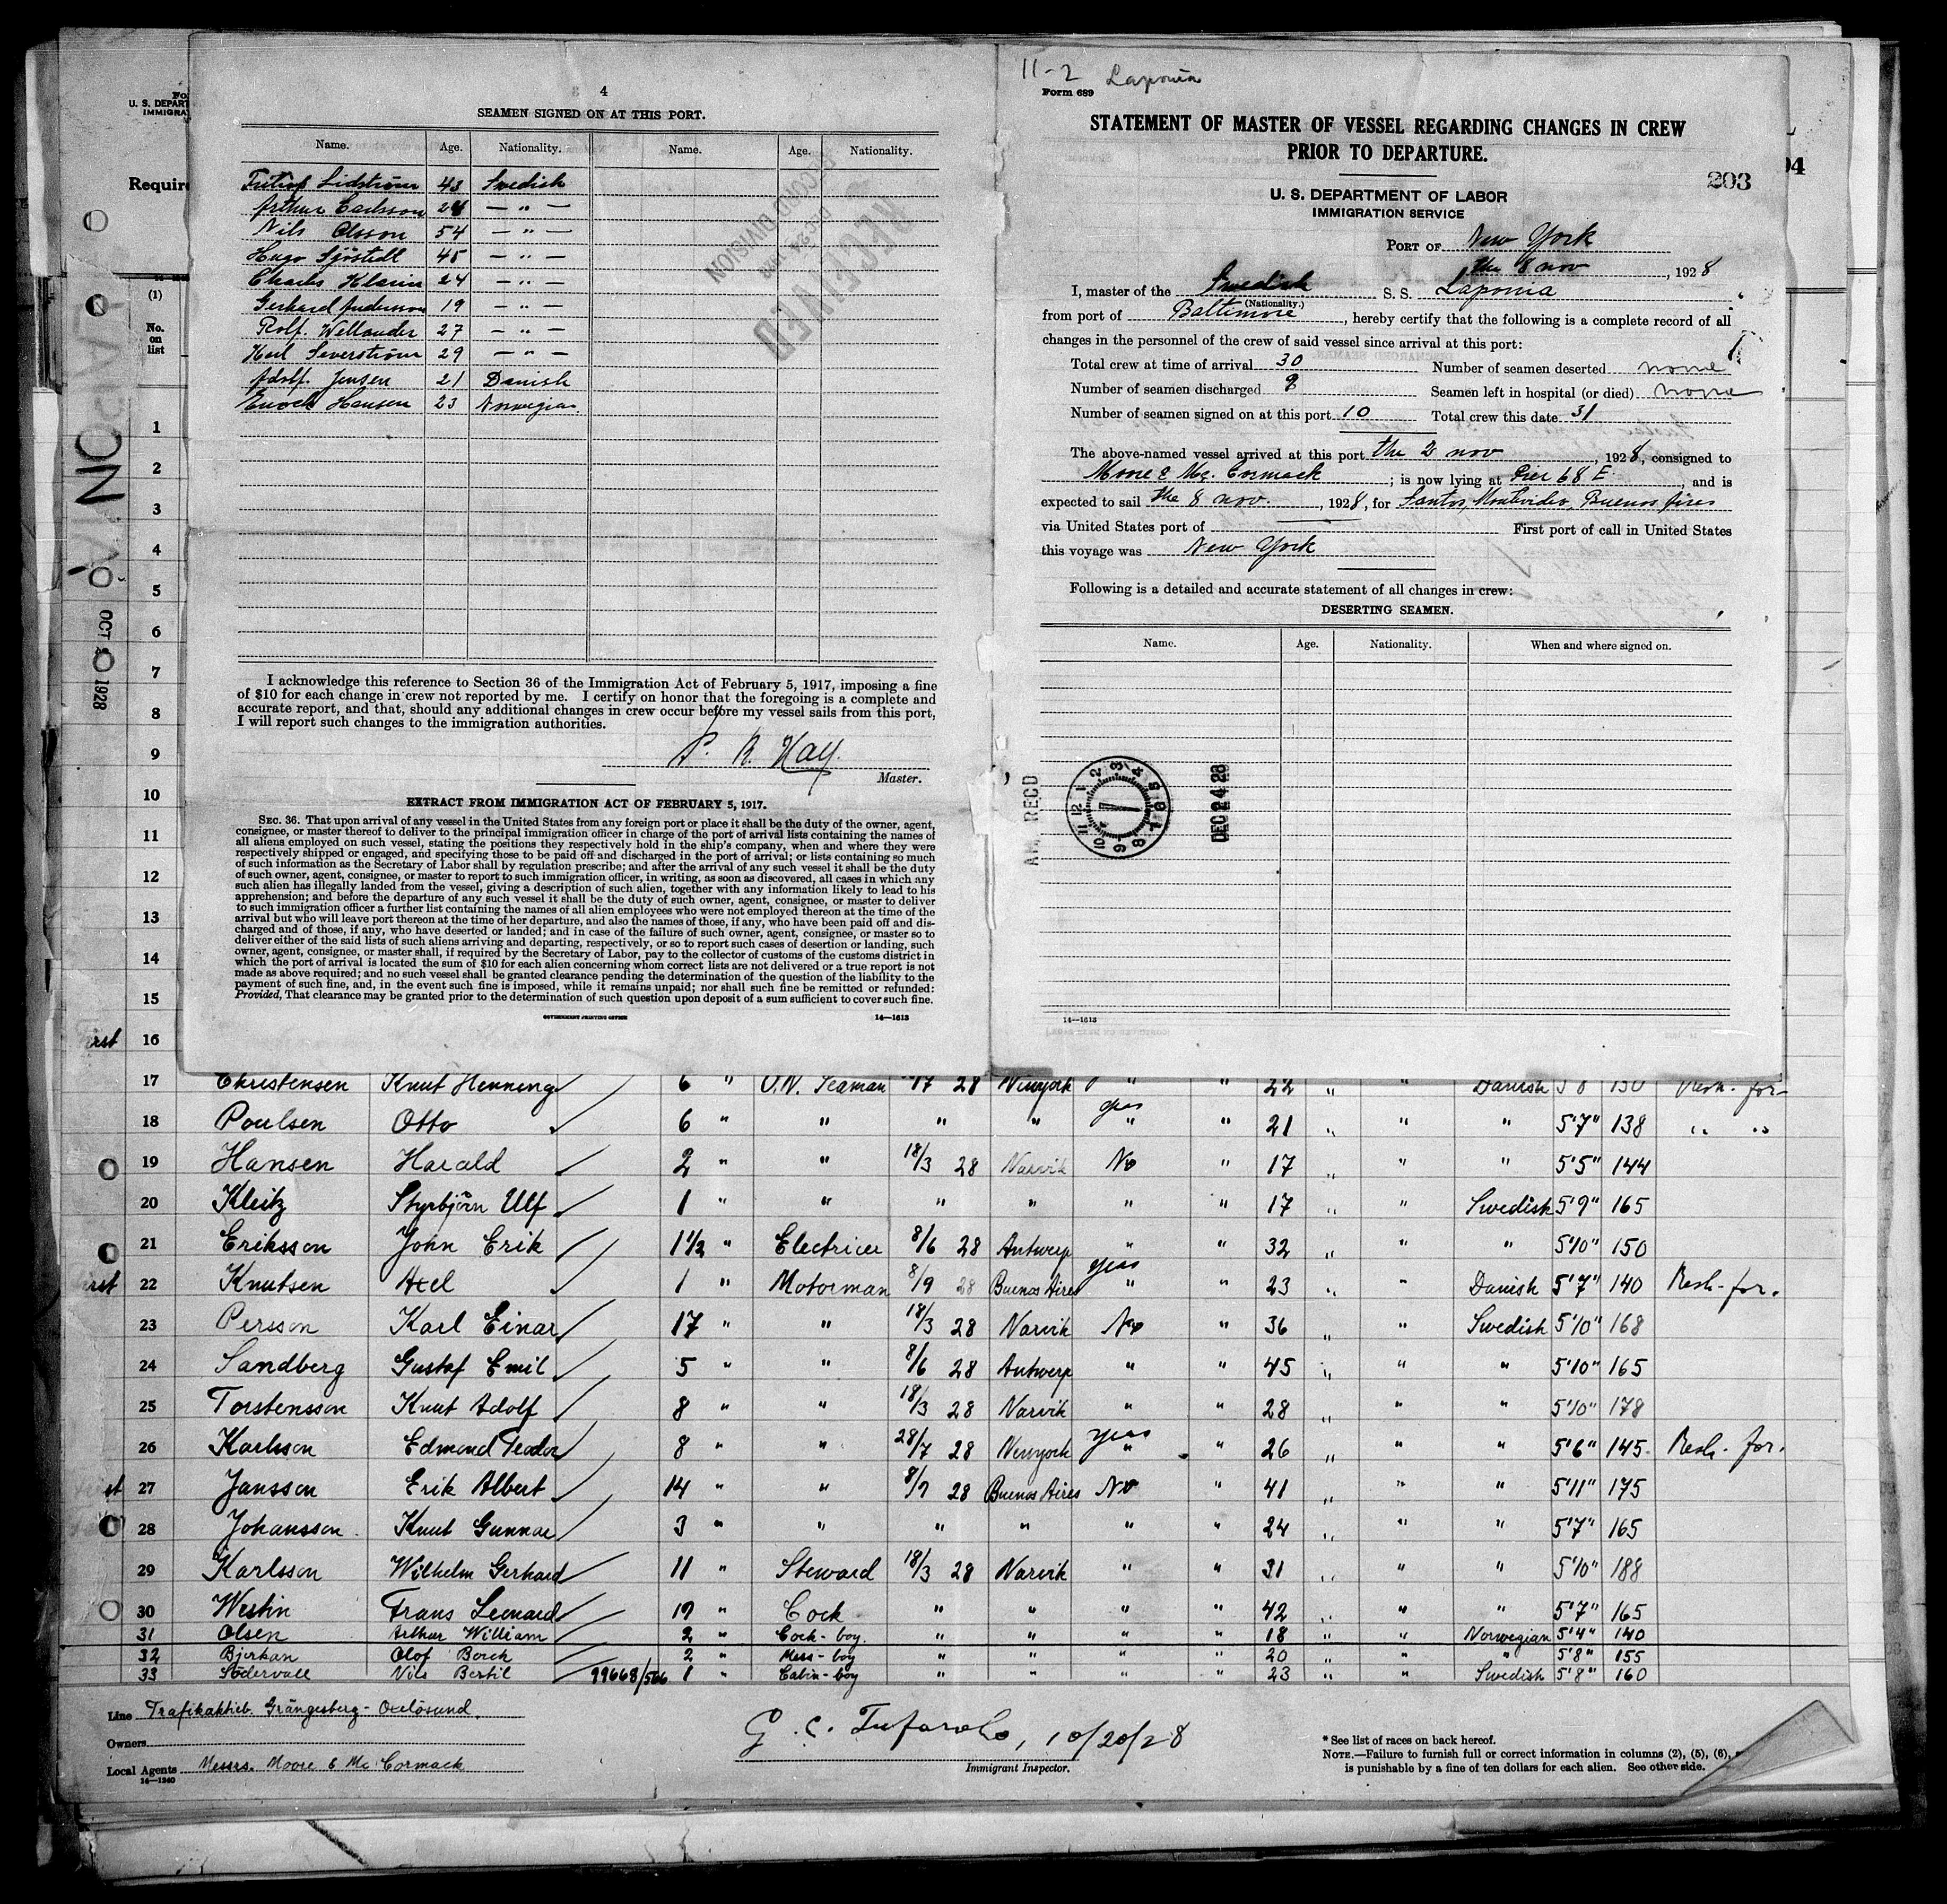 4
SEAMEN SIGNED ON AT THIS PORT.
Name. Age. Nationality. Name. Age. Nationality.
Lidström 43 Swedish
Arthur Carlsson 24 — " —
Nils Olsson 54 — " —
Hugo Sjöstedt 45 — " —
Charles Klarin 24 — " —
Gerhard Anderson 19 — " —
Rolf. Wellander 27 — " —
Karl Severström 29 — " —
Adolf. Jensen 21 Danish
Enock Hansen 23 Norwegian
RECEIVED
DEC 24 1928
RECORD DIVISION
I acknowledge this reference to Section 36 of the Immigration Act of February 5, 1917, imposing a fine
of $10 for each change in crew not reported by me. I certify on honor that the foregoing is a complete and
accurate report, and that, should any additional changes in crew occur before my vessel sails from this port,
I will report such changes to the immigration authorities.
Master.
EXTRACT FROM IMMIGRATION ACT OF FEBRUARY 5, 1917.
SEC. 36. That upon arrival of any vessel in the United States from any foreign port or place it shall be the duty of the owner, agent,
consignee, or master thereof to deliver to the principal immigration officer in charge of the port of arrival lists containing the names of
all aliens employed on such vessel, stating the positions they respectively hold in the ship's company, when and where they were
respectively shipped or engaged, and specifying those to be paid off and discharged in the port of arrival; or lists containing so much
of such information as the Secretary of Labor shall by regulation prescribe; and after the arrival of any such vessel it shall be the duty
of such owner, agent, consignee, or master to report to such immigration officer, in writing, as soon as discovered, all cases in which any
such alien has illegally landed from the vessel, giving a description of such alien, together with any information likely to lead to his
apprehension; and before the departure of any such vessel it shall be the duty of such owner, agent, consignee, or master to deliver
to such immigration officer a further list containing the names of all alien employees who were not employed thereon at the time of the
arrival but who will leave port thereon at the time of her departure, and also the names of those, if any, who have been paid off and dis-
charged and of those, if any, who have deserted or landed; and in case of the failure of such owner, agent, consignee, or master so to
deliver either of the said lists of such aliens arriving and departing, respectively, or so to report such cases of desertion or landing, such
owner, agent, consignee, or master shall, if required by the Secretary of Labor, pay to the collector of customs of the customs district in
which the port of arrival is located the sum of $10 for each alien concerning whom correct lists are not delivered or a true report is not
made as above required; and no such vessel shall be granted clearance pending the determination of the question of the liability to the
payment of such fine, and, in the event such fine is imposed, while it remains unpaid; nor shall such fine be remitted or refunded:
Provided, That clearance may be granted prior to the determination of such question upon deposit of a sum sufficient to cover such fine.
GOVERNMENT PRINTING OFFICE 14—1613
11-2 Laponia
Form 689
STATEMENT OF MASTER OF VESSEL REGARDING CHANGES IN CREW
PRIOR TO DEPARTURE.
203
U. S. DEPARTMENT OF LABOR
IMMIGRATION SERVICE
PORT OF New York
the 8 nov, 1928
I, master of the Swedish S. S. Laponia
(Nationality.)
from port of Baltimore, hereby certify that the following is a complete record of all
changes in the personnel of the crew of said vessel since arrival at this port:
Total crew at time of arrival 30 Number of seamen deserted none
Number of seamen discharged 9 Seamen left in hospital (or died) none
Number of seamen signed on at this port 10 Total crew this date 31
The above-named vessel arrived at this port the 2 nov, 1928, consigned to
Moore & Mc. Cormack; is now lying at Pier 68 E, and is
expected to sail the 8 nov., 1928, for Santos, Montevideo, Buenos Aires
via United States port of First port of call in United States
this voyage was New York
Following is a detailed and accurate statement of all changes in crew:
DESERTING SEAMEN.
Name. Age. Nationality. When and where signed on.
RECD
DEC 24 28
14—1613
U. S. DEPART
IMMIGRA
Require
94
(1)
No.
on
list
OCT 20 1928
1
2
3
4
5
6
7
8
9
10
11
12
13
14
15
16
17 Christensen Knut Henning 6 " O.N. Seaman 17 28 Newyork " " 22 " " Danish 5 8 150 Resh. for-
18 Poulsen Otto 6 " " " " yes " " 21 " " " 5'7" 138 " "
19 Hansen Harald 2 " " 18/3 28 Narvik No " 17 " " " 5'5" 144
20 Kleitz Styrbjörn Ulf 1 " " " " " " 17 " " Swedish 5'9" 165
21 Eriksson John Erik 1½ " Electricer 8/6 28 Antwerp " " 32 " " " 5'10" 150
22 Knutsen Axel 1 " Motorman 8/9 28 Buenos Aires yes " " 23 " " Danish 5'7" 140 Resh-for.
23 Persson Karl Einar 17 " " 18/3 28 Narvik No " 36 " " Swedish 5'10" 168
24 Sandberg Gustaf Emil 5 " " 8/6 28 Antwerp " " 45 " " " 5'10" 165
25 Torstensson Knut Adolf 8 " " 18/3 28 Narvik " " 28 " " " 5'10" 178
26 Karlsson Edmond Teodor 8 " " 28/7 28 Newyork yes " " 26 " " " 5'6" 145 Resh. for.
27 Jansson Erik Albert 14 " " 8/9 28 Buenos Aires No " 41 " " " 5'11" 175
28 Johansson Knut Gunnar 3 " " " " " " 24 " " " 5'7" 165
29 Karlsson Wilhelm Gerhard 11 " Steward 18/3 28 Narvik " " 31 " " " 5'10" 188
30 Westin Frans Leonard 19 " Cock " " " " 42 " " " 5'7" 165
31 Olsen Arthur William 2 " Cock-boy. " " " " 18 " " Norwegian 5'4" 140
32 Bjerkan Olof Borch 2 " Mess-boy " " " " 20 " " " 5'8" 155
33 Södervall Nils Bertil 99668/566 1 " Cabin-boy " " " " 23 " " Swedish 5'8" 160
Line Trafikaktieb. Grängesberg-Oxelösund.
Owners
Local Agents Messrs. Moore & Mc Cormack
14—1240
10/20/28
Immigrant Inspector.
* See list of races on back hereof.
NOTE.—Failure to furnish full or correct information in columns (2), (5), (6),
is punishable by a fine of ten dollars for each alien. See other side.